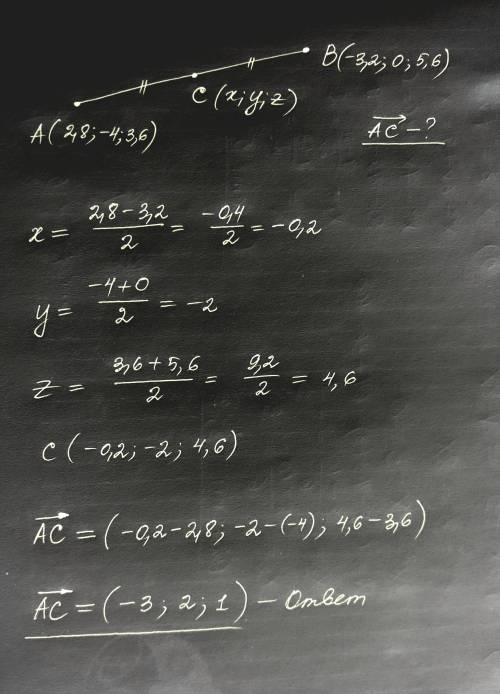 B(-3,2; 0; 5,6)
C (x; y; z)
A(2,8; -4; 3,6)
$\overrightarrow{AC}$ - ?
x = $\frac{2,8-3,2}{2}$ = $\frac{-0,4}{2}$ = -0,2
y = $\frac{-4+0}{2}$ = -2
z = $\frac{3,6+5,6}{2}$ = $\frac{9,2}{2}$ = 4,6
C (-0,2; -2; 4,6)
$\overrightarrow{AC}$ = (-0,2-2,8; -2-(-4); 4,6-3,6)
$\overrightarrow{AC}$ = (-3; 2; 1) - Ответ